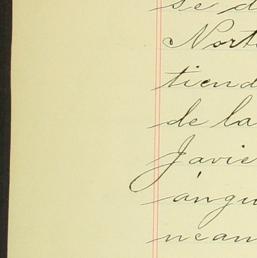 se d
Nort
tiend
de la
Javie
angu
nean